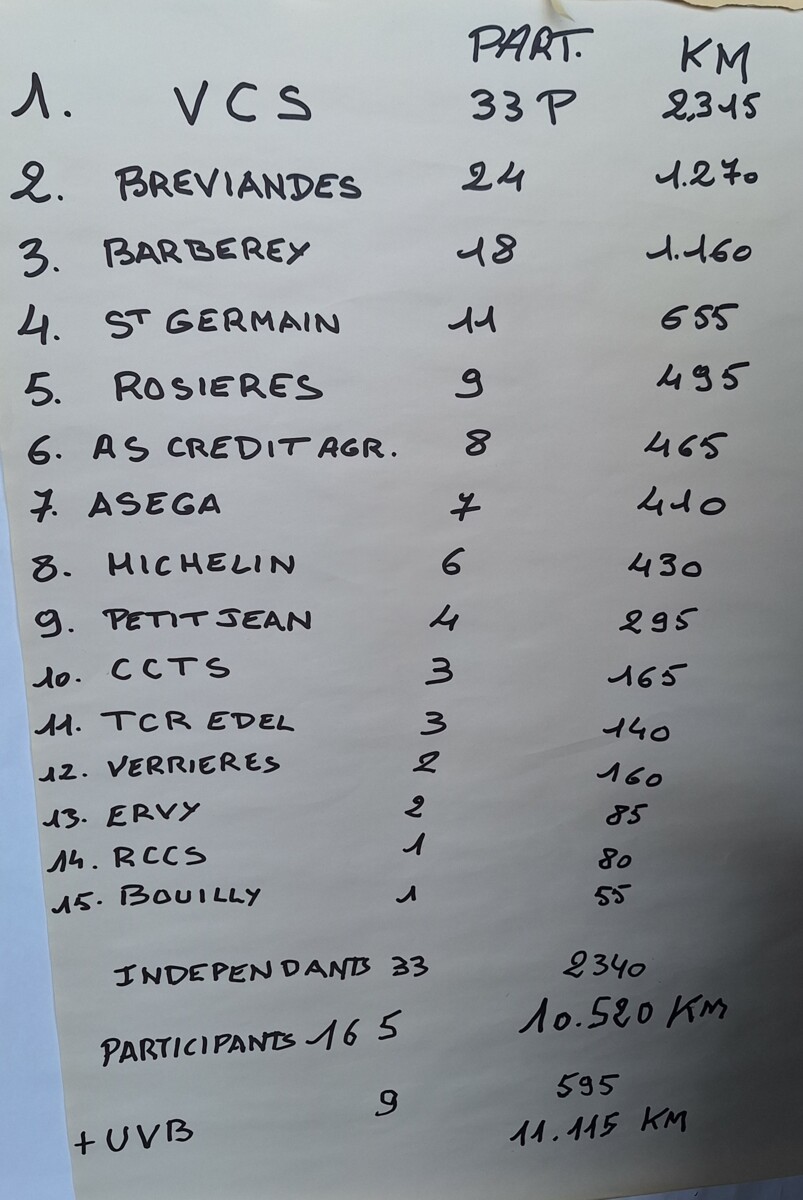 PART. KM
1. VCS 33 P 2,315
2. BREVIANDES 24 1.270
3. BARBEREY 18 1.160
4. ST GERMAIN 11 655
5. ROSIERES 9 495
6. AS CREDIT AGR. 8 465
7. ASEGA 7 410
8. MICHELIN 6 430
9. PETITJEAN 4 295
10. CCTS 3 165
11. TCR EDEL 3 140
12. VERRIERES 2 160
13. ERVY 2 85
14. RCCS 1 80
15. BOUILLY 1 55
INDEPENDANTS 33 2340
PARTICIPANTS 165 10.520 KM
+ UVB 9 595
11.115 KM